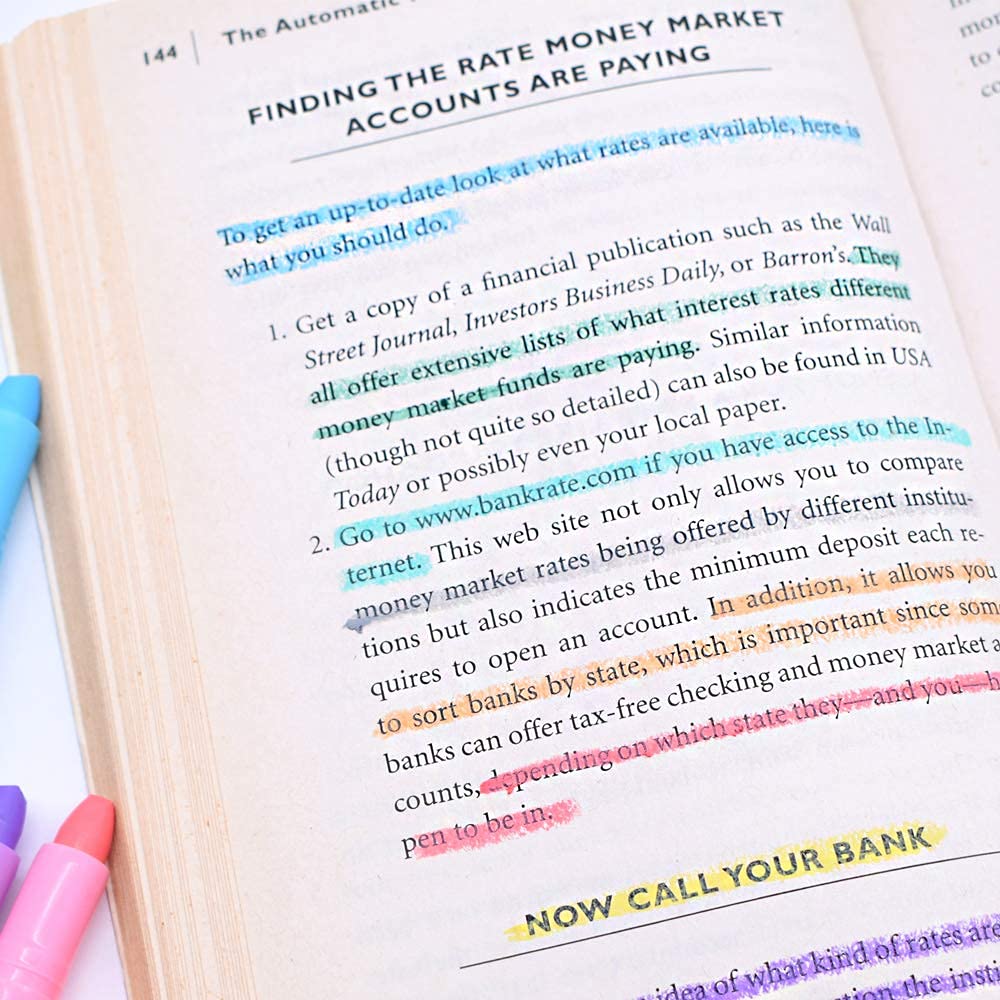 144 | The Automatic
FINDING THE RATE MONEY MARKET
ACCOUNTS ARE PAYING
To get an up-to-date look at what rates are available, here is
what you should do.
1. Get a copy of a financial publication such as the Wall
Street Journal, Investors Business Daily, or Barron's. They
all offer extensive lists of what interest rates different
money market funds are paying. Similar information
(though not quite so detailed) can also be found in USA
Today or possibly even your local paper.
2. Go to www.bankrate.com if you have access to the In-
ternet. This web site not only allows you to compare
money market rates being offered by different institu-
tions but also indicates the minimum deposit each re-
quires to open an account. In addition, it allows you
to sort banks by state, which is important since som
banks can offer tax-free checking and money market a
counts, depending on which state they—and you—h
pen to be in.
NOW CALL YOUR BANK
idea of what kind of rates are
the insti
mo
to
co